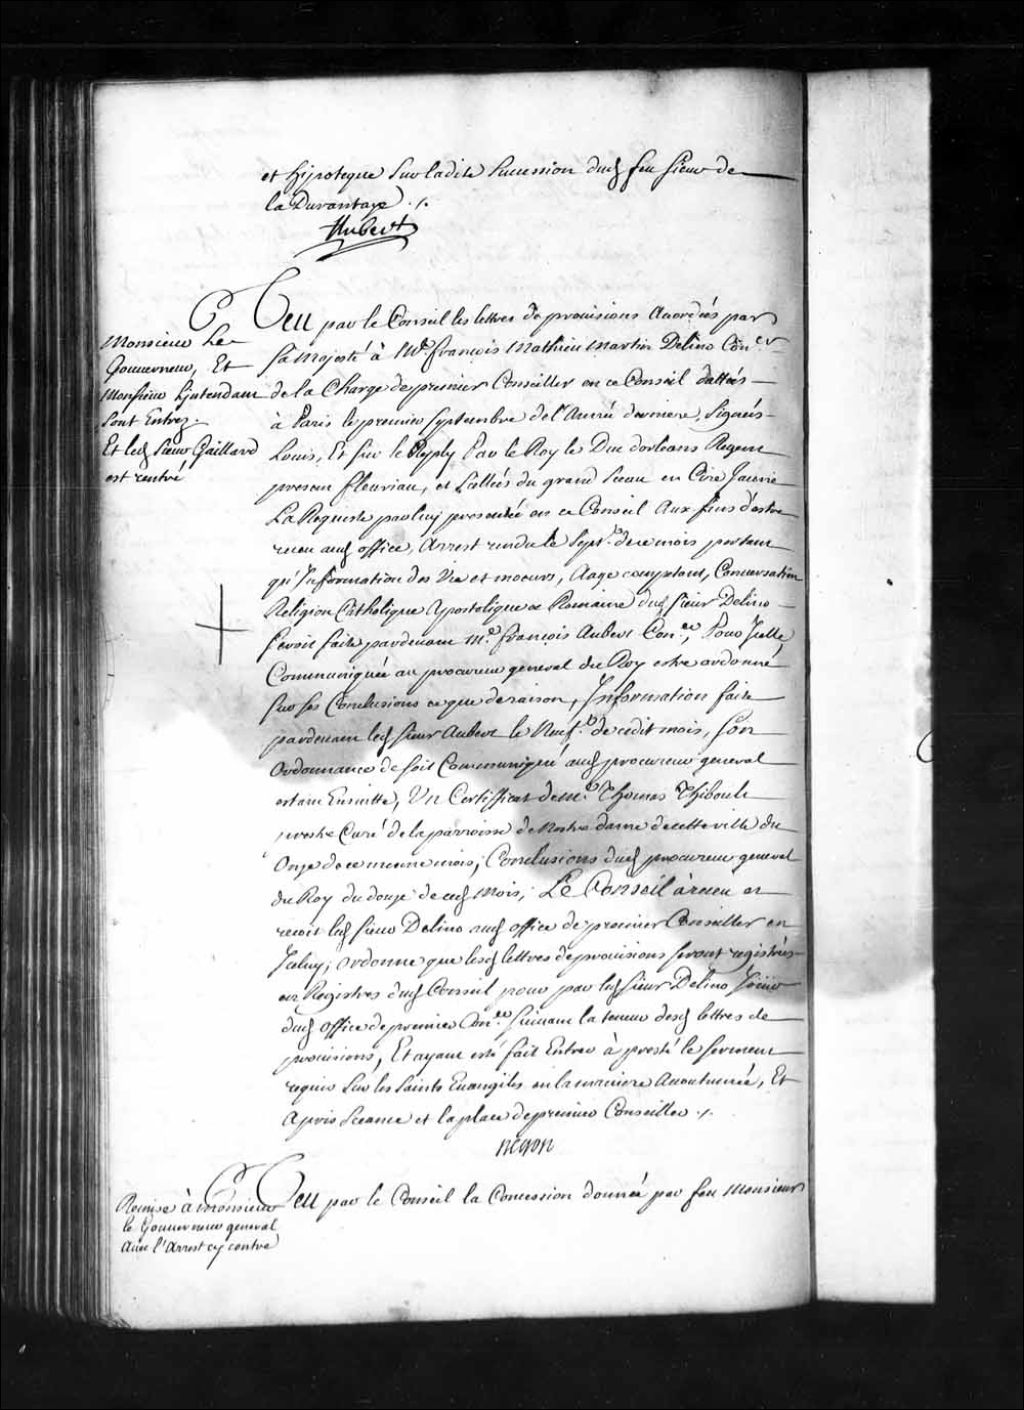 et hipoteque Sur ladite Succession dud feu Sieur de
la Durantaye ./.
Hubert
Veu par le Conseil les lettres de prouisions Accordées par
Monsieur Le
Gouuerneur, Et
Monsieur L'jntendant
sont Entrez
Et led Sieur Gaillard
est rentré
Sa Majesté à Me françois Mathieu Martin Delino Coner
de la Charge de premier Conseiller en ce Conseil dattées
à Paris le premier Septembre de l'Année derniere, Signées
Louis, Et sur le Reply Par le Roy le Duc dorleans Regent
present fleuriau, et Sellées du grand Sceau en Cire Jaune
La Requeste par luy presentée en ce Conseil Aux fins d'estre
receu aud office, Arrest rendu le Septe. de ce mois portant
qu'Jnformation des Vie et moeurs, Aage competant, Conuersation
Religion Catholique Apostolique et Romaine dud Sieur Delino
seroit faite pardeuant Me. françois Aubert Coner, Pour Jcelle
Communiquée au procureur general du Roy estre ordonné
sur ses Conclusions ce que de raison, Jnformation faite
pardeuant led Sieur Aubert le Neufe. de cedit mois, son
Ordonnance de soit Communiqué aud procureur general
estant Ensuitte, Vn Certifficat de Me. Thomas Thiboult
prestre Curé de la parroisse de Nostre dame de cette ville du
Onze de ce mesme mois; Conclusions dud procureur general
du Roy du douze de ced Mois; Le Conseil à receu et
recoit led Sieur Delino aud office de premier Conseiller en
Jceluy; ordonne que lesd lettres de prouisions seront registrées
ez Registres dud Conseil pour par led Sieur Delino Jouir
dud office de premier Coner. suiuant la teneur desd lettres de
prouisions, Et ayant esté fait Entrer à presté le serment
requis Sur les Saints Euangiles en la maniere Accoutumée, Et
A pris Sceance et la place de premier Conseiller ./.
Begon
Veu par le Conseil la Concession donnée par feu Monsieur
Remise à Monsieur
le Gouuerneur general
Auec l'Arrest cy contre